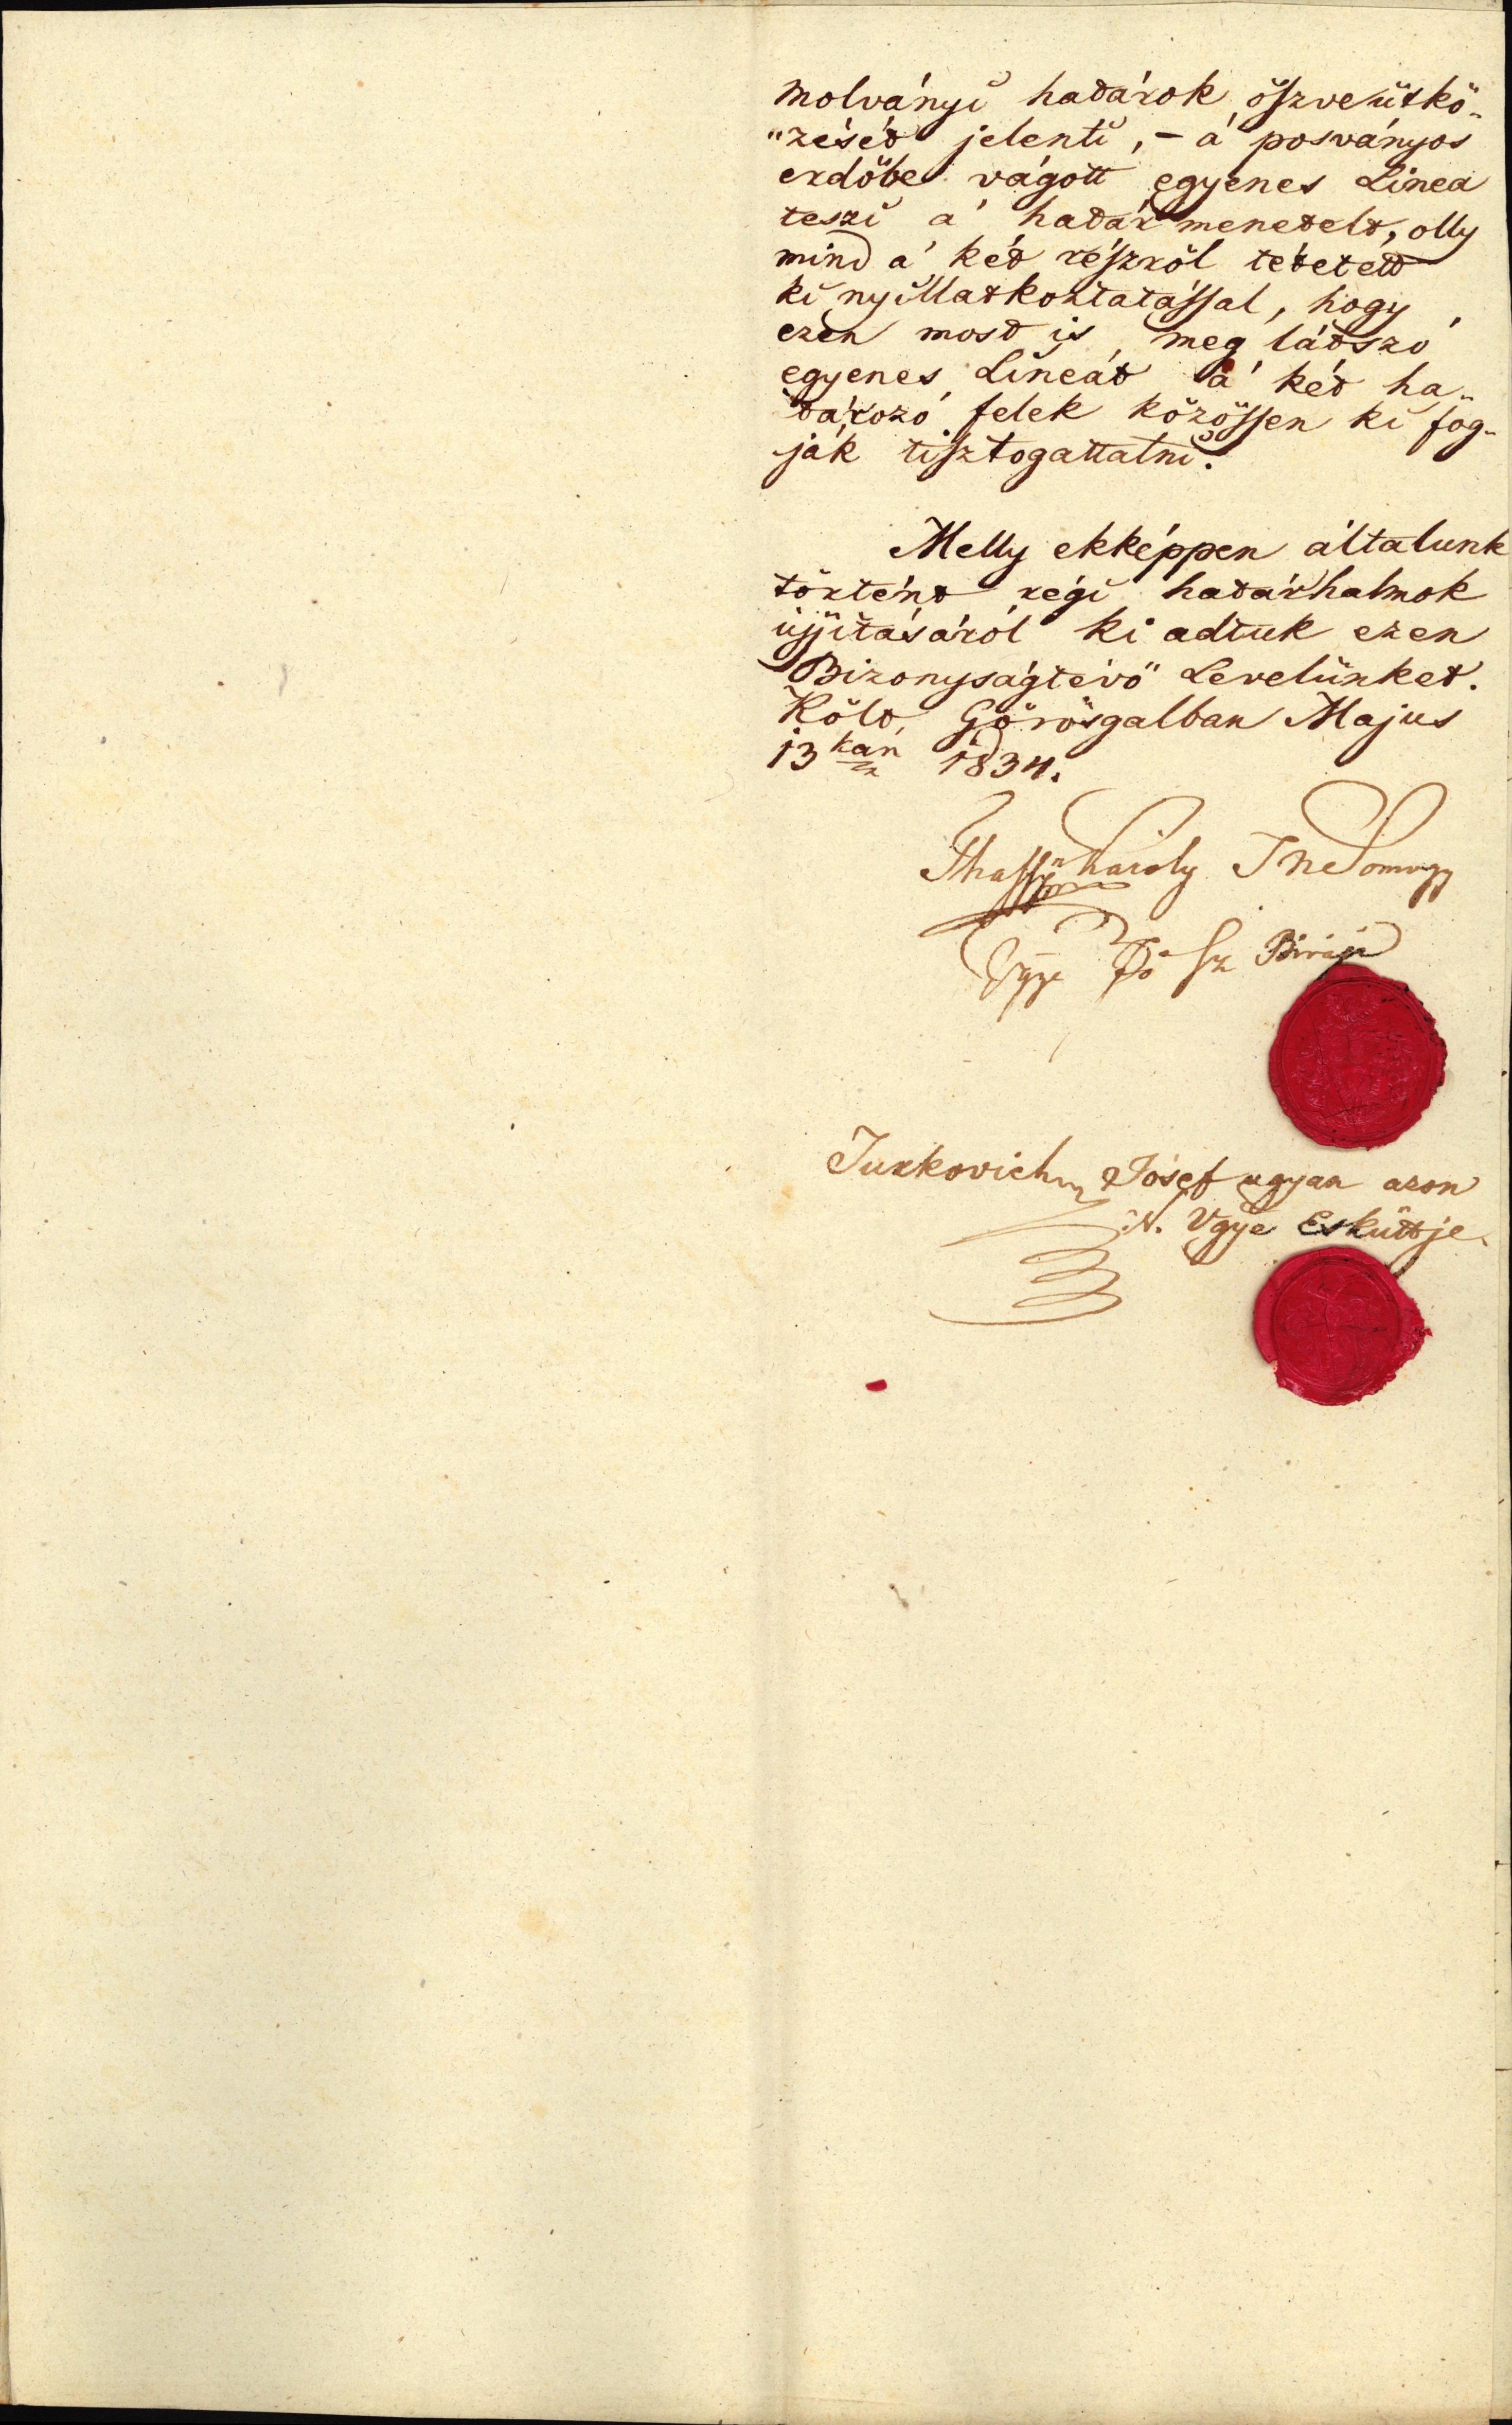 molványi határok öszveütkö-
"zését jelenti, – á posványos
erdőbe vágott egyenes Linea
teszi á határ menetelt, olly
mind á két részről tétetett
ki nyillatkoztatással, hogy
ezen most is meg látszó
egyenes Lineát á két ha-
tározó felek közössen ki fog-
ják tisztogattatni.
Melly ekképpen általunk
történt régi határhalmok
ujjitásáról ki adtuk ezen
Bizonyságtévő Levelünket.
Költ Görösgalban Majus
13kán 1834.
Károly T Ne Somogy
Vgye Fő Sz Birája
Jurkovich Jósef ugyan azon
N. Vgye Esküttje